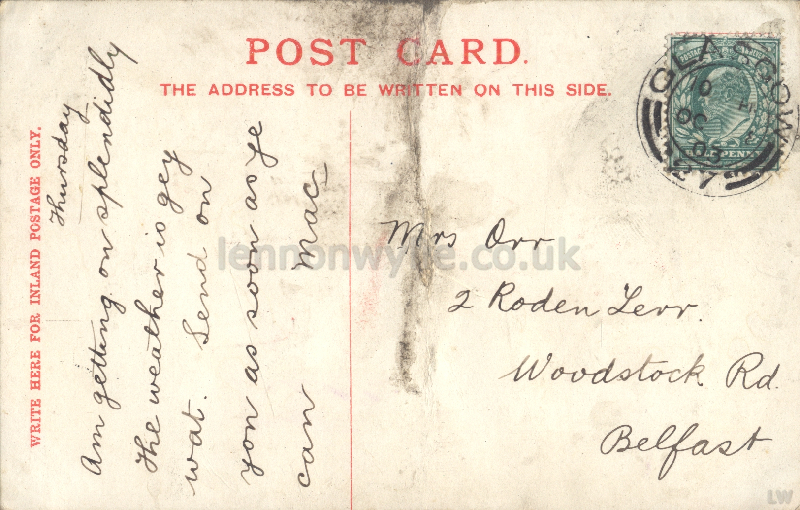 POST CARD.
THE ADDRESS TO BE WRITTEN ON THIS SIDE.
WRITE HERE FOR INLAND POSTAGE ONLY.
Thursday
Am getting on splendidly
The weather is gey
wat. Send on
yon as soon as ye
can Mac
Mrs Orr
2 Roden Terr.
Woodstock Rd
Belfast
GLASGOW
OC
03
27
lennonwylie.co.uk
LW